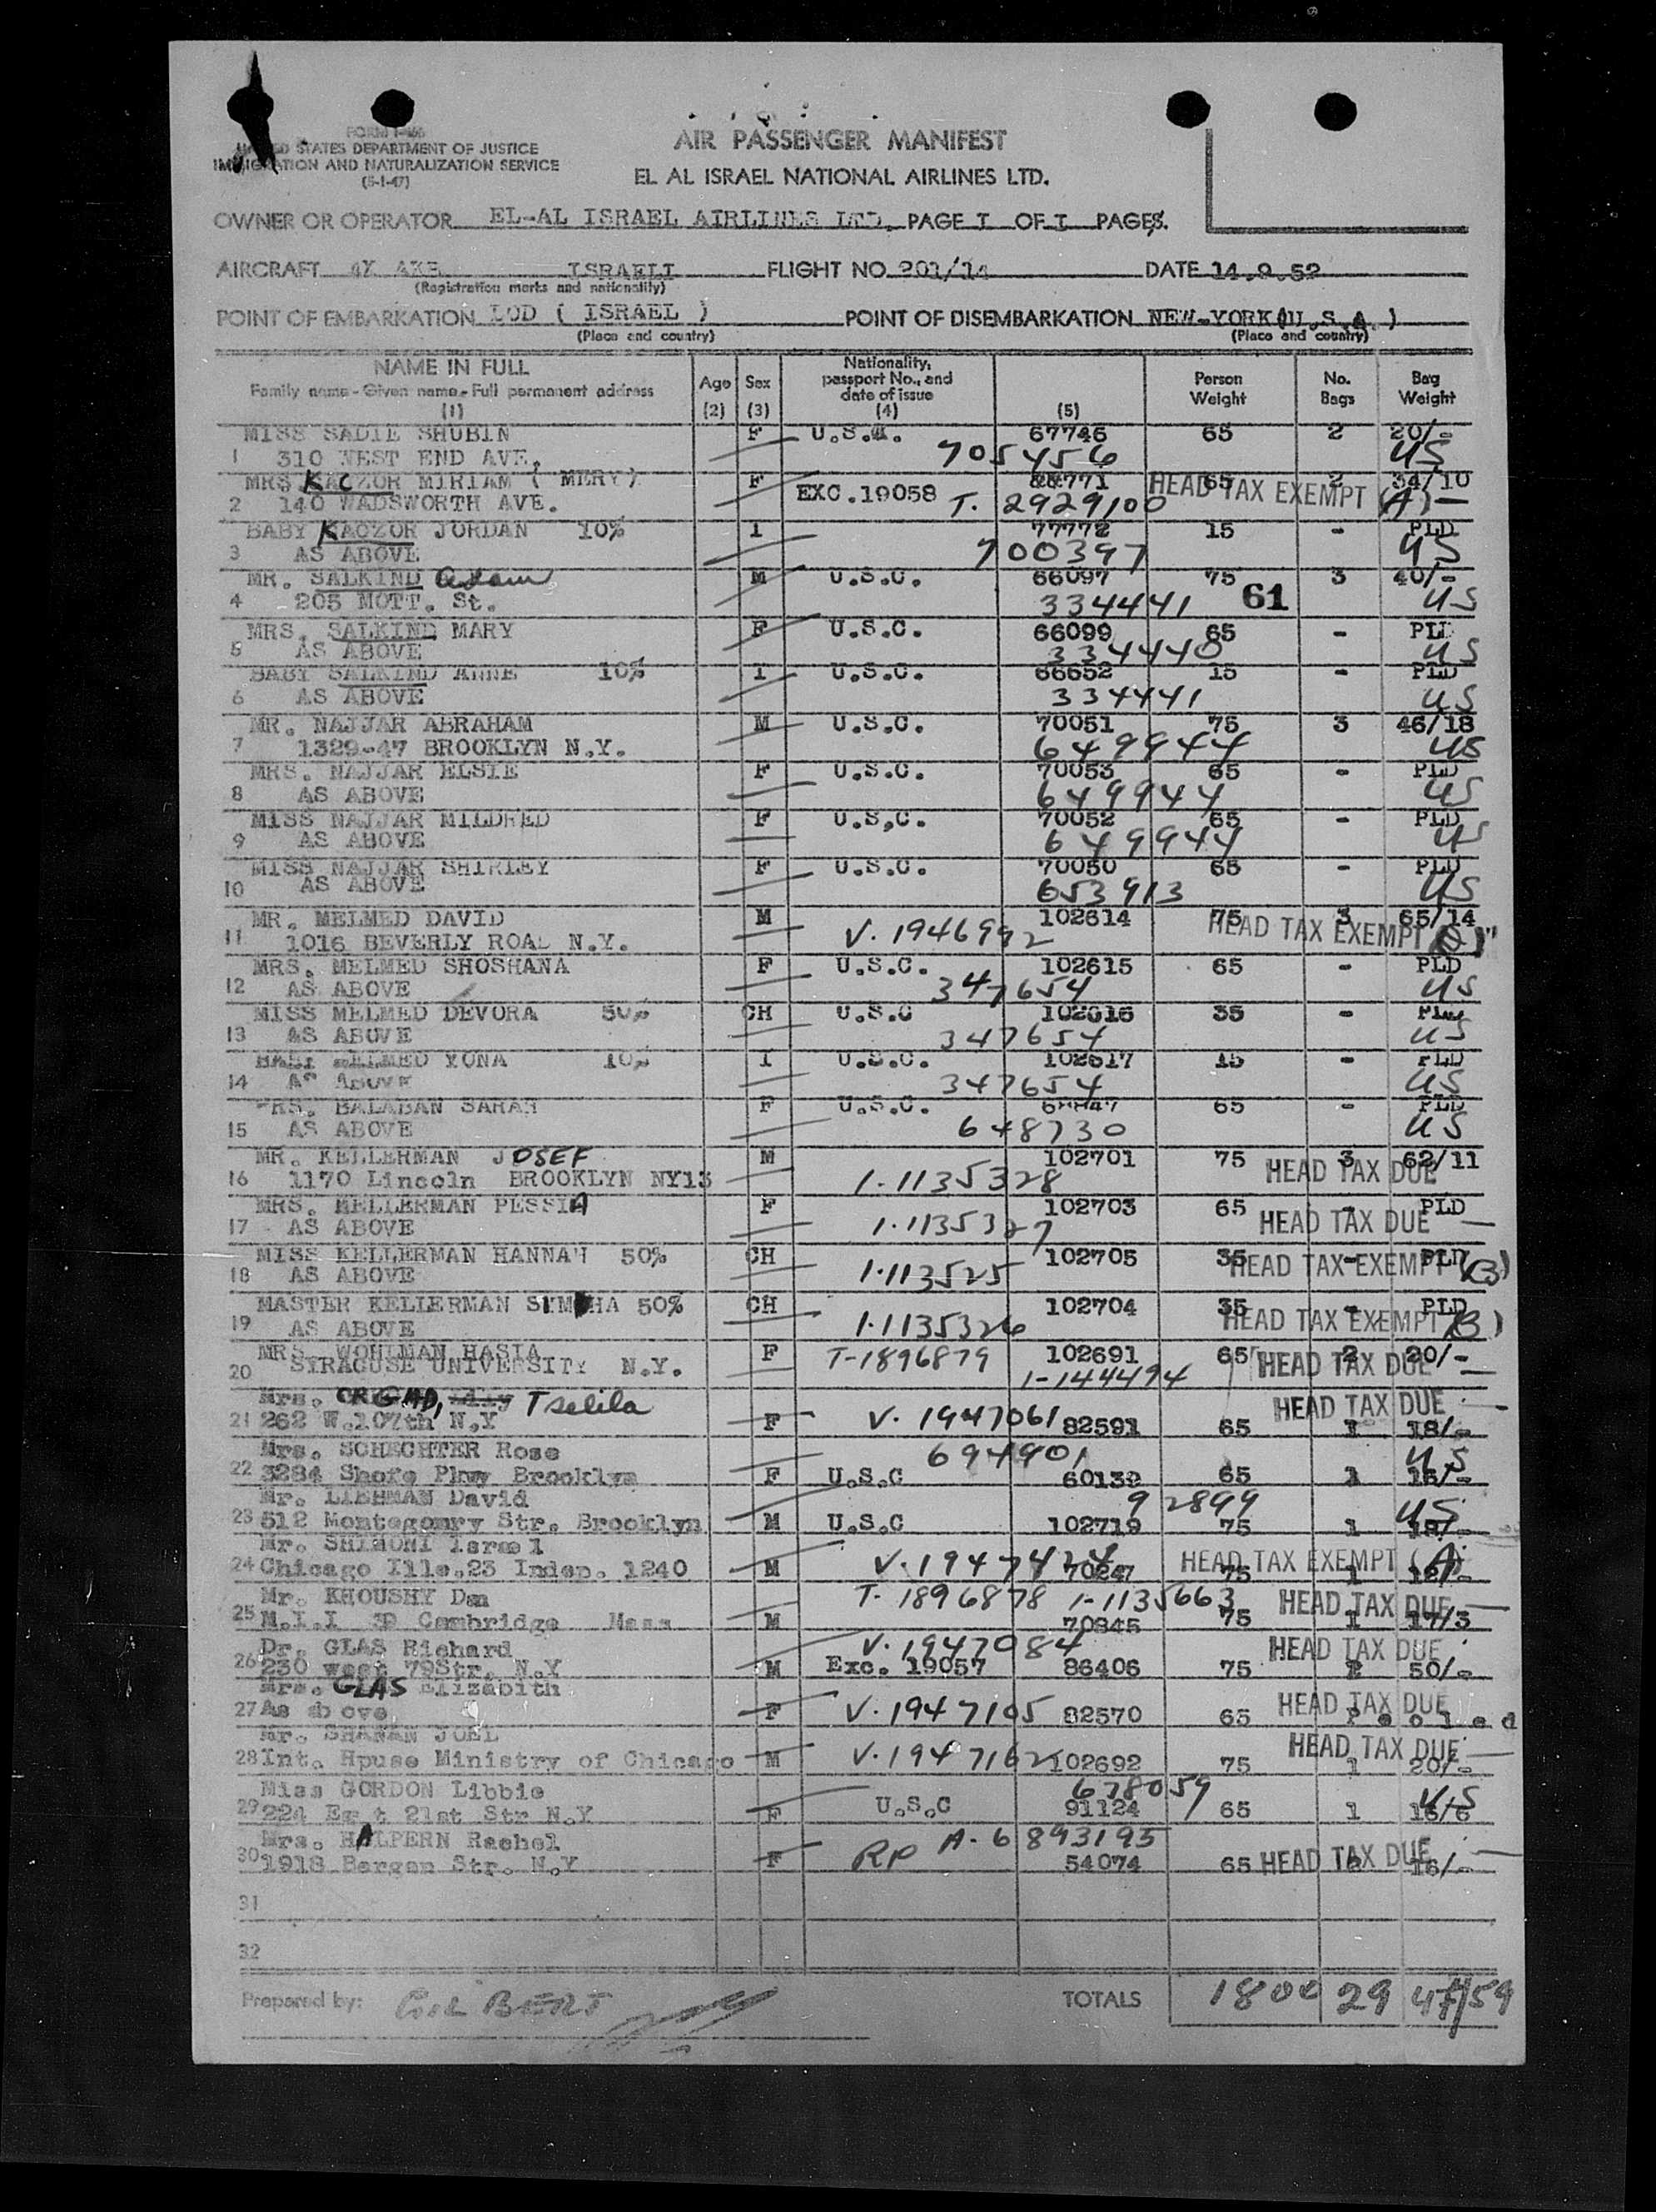 FORM I-466
UNITED STATES DEPARTMENT OF JUSTICE
IMMIGRATION AND NATURALIZATION SERVICE
(5-1-47)
AIR PASSENGER MANIFEST
EL AL ISRAEL NATIONAL AIRLINES LTD.
OWNER OR OPERATOR EL-AL ISRAEL AIRLINES LTD. PAGE I OF I PAGES.
AIRCRAFT 4X AKB ISRAELI FLIGHT NO. 201/14 DATE 14.9.52
(Registration marks and nationality)
POINT OF EMBARKATION LOD ( ISRAEL ) POINT OF DISEMBARKATION NEW-YORK(U.S.A.)
(Place and country) (Place and country)
NAME IN FULL Nationality, Person No. Bag
Family name - Given name - Full permanent address Age Sex passport No., and date of issue Weight Bags Weight
(1) (2) (3) (4) (5)
MISS SADIE SHUBIN F U.S.A. 67746 65 2 20/-
1 310 WEST END AVE. 705456 US
MRS KACZOR MIRIAM ( MERY) F 65 2 34/10
2 140 WADSWORTH AVE. EXC.19058 T. 2929100 HEAD TAX EXEMPT (A) —
BABY KACZOR JORDAN 10% I 77772 15 - PLD
3 AS ABOVE 700397 US
MR. SALKIND Adam M U.S.C. 66097 75 3 40/-
4 205 MOTT. St. 334441 61 US
MRS. SALKIND MARY F U.S.C. 66099 65 - PLD
5 AS ABOVE 334440 US
BABY SALKIND ANNE 10% I U.S.C. 66652 15 - PLD
6 AS ABOVE 334441 US
MR. NAJJAR ABRAHAM M U.S.C. 70051 75 3 46/18
7 1329-47 BROOKLYN N.Y. 649944 US
MRS. NAJJAR ELSIE F U.S.C. 70053 65 - PLD
8 AS ABOVE 649944 US
MISS NAJJAR MILDRED F U.S.C. 70052 65 - PLD
9 AS ABOVE 649944 US
MISS NAJJAR SHIRLEY F U.S.C. 70050 65 - PLD
10 AS ABOVE 653913 US
MR. MELMED DAVID M 102614 75 3 65/14
11 1016 BEVERLY ROAD N.Y. V. 1946992 HEAD TAX EXEMPT
MRS. MELMED SHOSHANA F U.S.C. 102615 65 - PLD
12 AS ABOVE 347654 US
MISS MELMED DEVORA 50% CH U.S.C 102616 35 - PLD
13 AS ABOVE 347654 US
BABY MELMED YONA 10% I U.S.C. 102617 15 - PLD
14 AS ABOVE 347654 US
MRS. BALABAN SARAH F U.S.C. 65 - PLD
15 AS ABOVE 648730 US
MR. KELLERMAN JOSEF M 102701 75 3 62/11
16 1170 Lincoln BROOKLYN NY13 1-1135328 HEAD TAX DUE
MRS. KELLERMAN PESSIA F 102703 65 - PLD
17 - AS ABOVE 1-1135327 HEAD TAX DUE —
MISS KELLERMAN HANNAH 50% CH 102705 35 - PLD
18 AS ABOVE 1-113525 HEAD TAX EXEMPT (B)
MASTER KELLERMAN SIMHA 50% CH 102704 35 - PLD
19 AS ABOVE 1-1135326 HEAD TAX EXEMPT (B)
MRS. WOHLMAN HASIA F T-1896879 102691 65 2 20/-
20 SYRACUSE UNIVERSITY N.Y. 1-144494 HEAD TAX DUE —
Mrs. ORGAD, Tselila HEAD TAX DUE —
21 262 W.107th N.Y F V. 1947061 82591 65 1 18/-
Mrs. SCHECHTER Rose 694901 US
22 3284 Shore Pkwy Brooklyn F U.S.C 60139 65 1 15/-
Mr. LIEHMAN David 92899 US
23 512 Montegomry Str. Brooklyn M U.S.C 102719 75 1 18/-
Mr. SHIMONI Israel
24 Chicago Ills.23 Indep. 1240 M V. 1947424 70247 HEAD TAX EXEMPT (A) 75 1 12/-
Mr. KHOUSHY Dan T- 1896878 1-1135663 HEAD TAX DUE —
25 M.I.I Cambridge Mass M 70845 75 1 17/3
Dr. GLAS Richard V. 1947084 HEAD TAX DUE
26 230 west 79Str. N.Y M Exc. 19057 86406 75 2 50/-
Mrs. GLAS Elizabith
27 As above F V. 1947105 82570 65 HEAD TAX DUE Pooled
Mr. SHANAN JOEL HEAD TAX DUE —
28 Int. Hpuse Ministry of Chicago M V. 1947162 102692 75 1 20/-
Miss GORDON Libbie 678059 US
29 224 East 21st Str N.Y F U.S.C 91124 65 1 15/6
Mrs. HALPERN Rachel
30 1918 Bergen Str. N.Y F RP A-6893195 54074 65 HEAD TAX DUE — 16/-
31
32
Prepared by: GILBERT TOTALS 1800 29